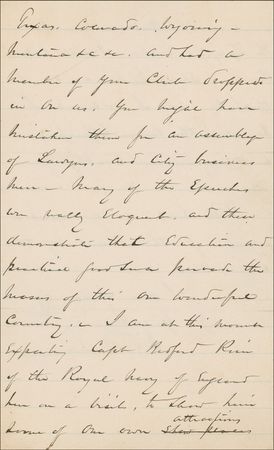 Texas. Colorado. Wyoming -
Montana &c &c. and had a
member of your Club dropped
in on us. You might have
mistaken them for an assembly
of Lawyers, and City business
men - Many of the Speeches
were really Eloquent, and then
demonstrate that Education and
practical good Sense pervade the
masses of this our wonderful
Country. I am at this moment
Expecting Capt Bedford Pim
of the Royal Navy of England
here on a visit, to show him
some of our own attractions